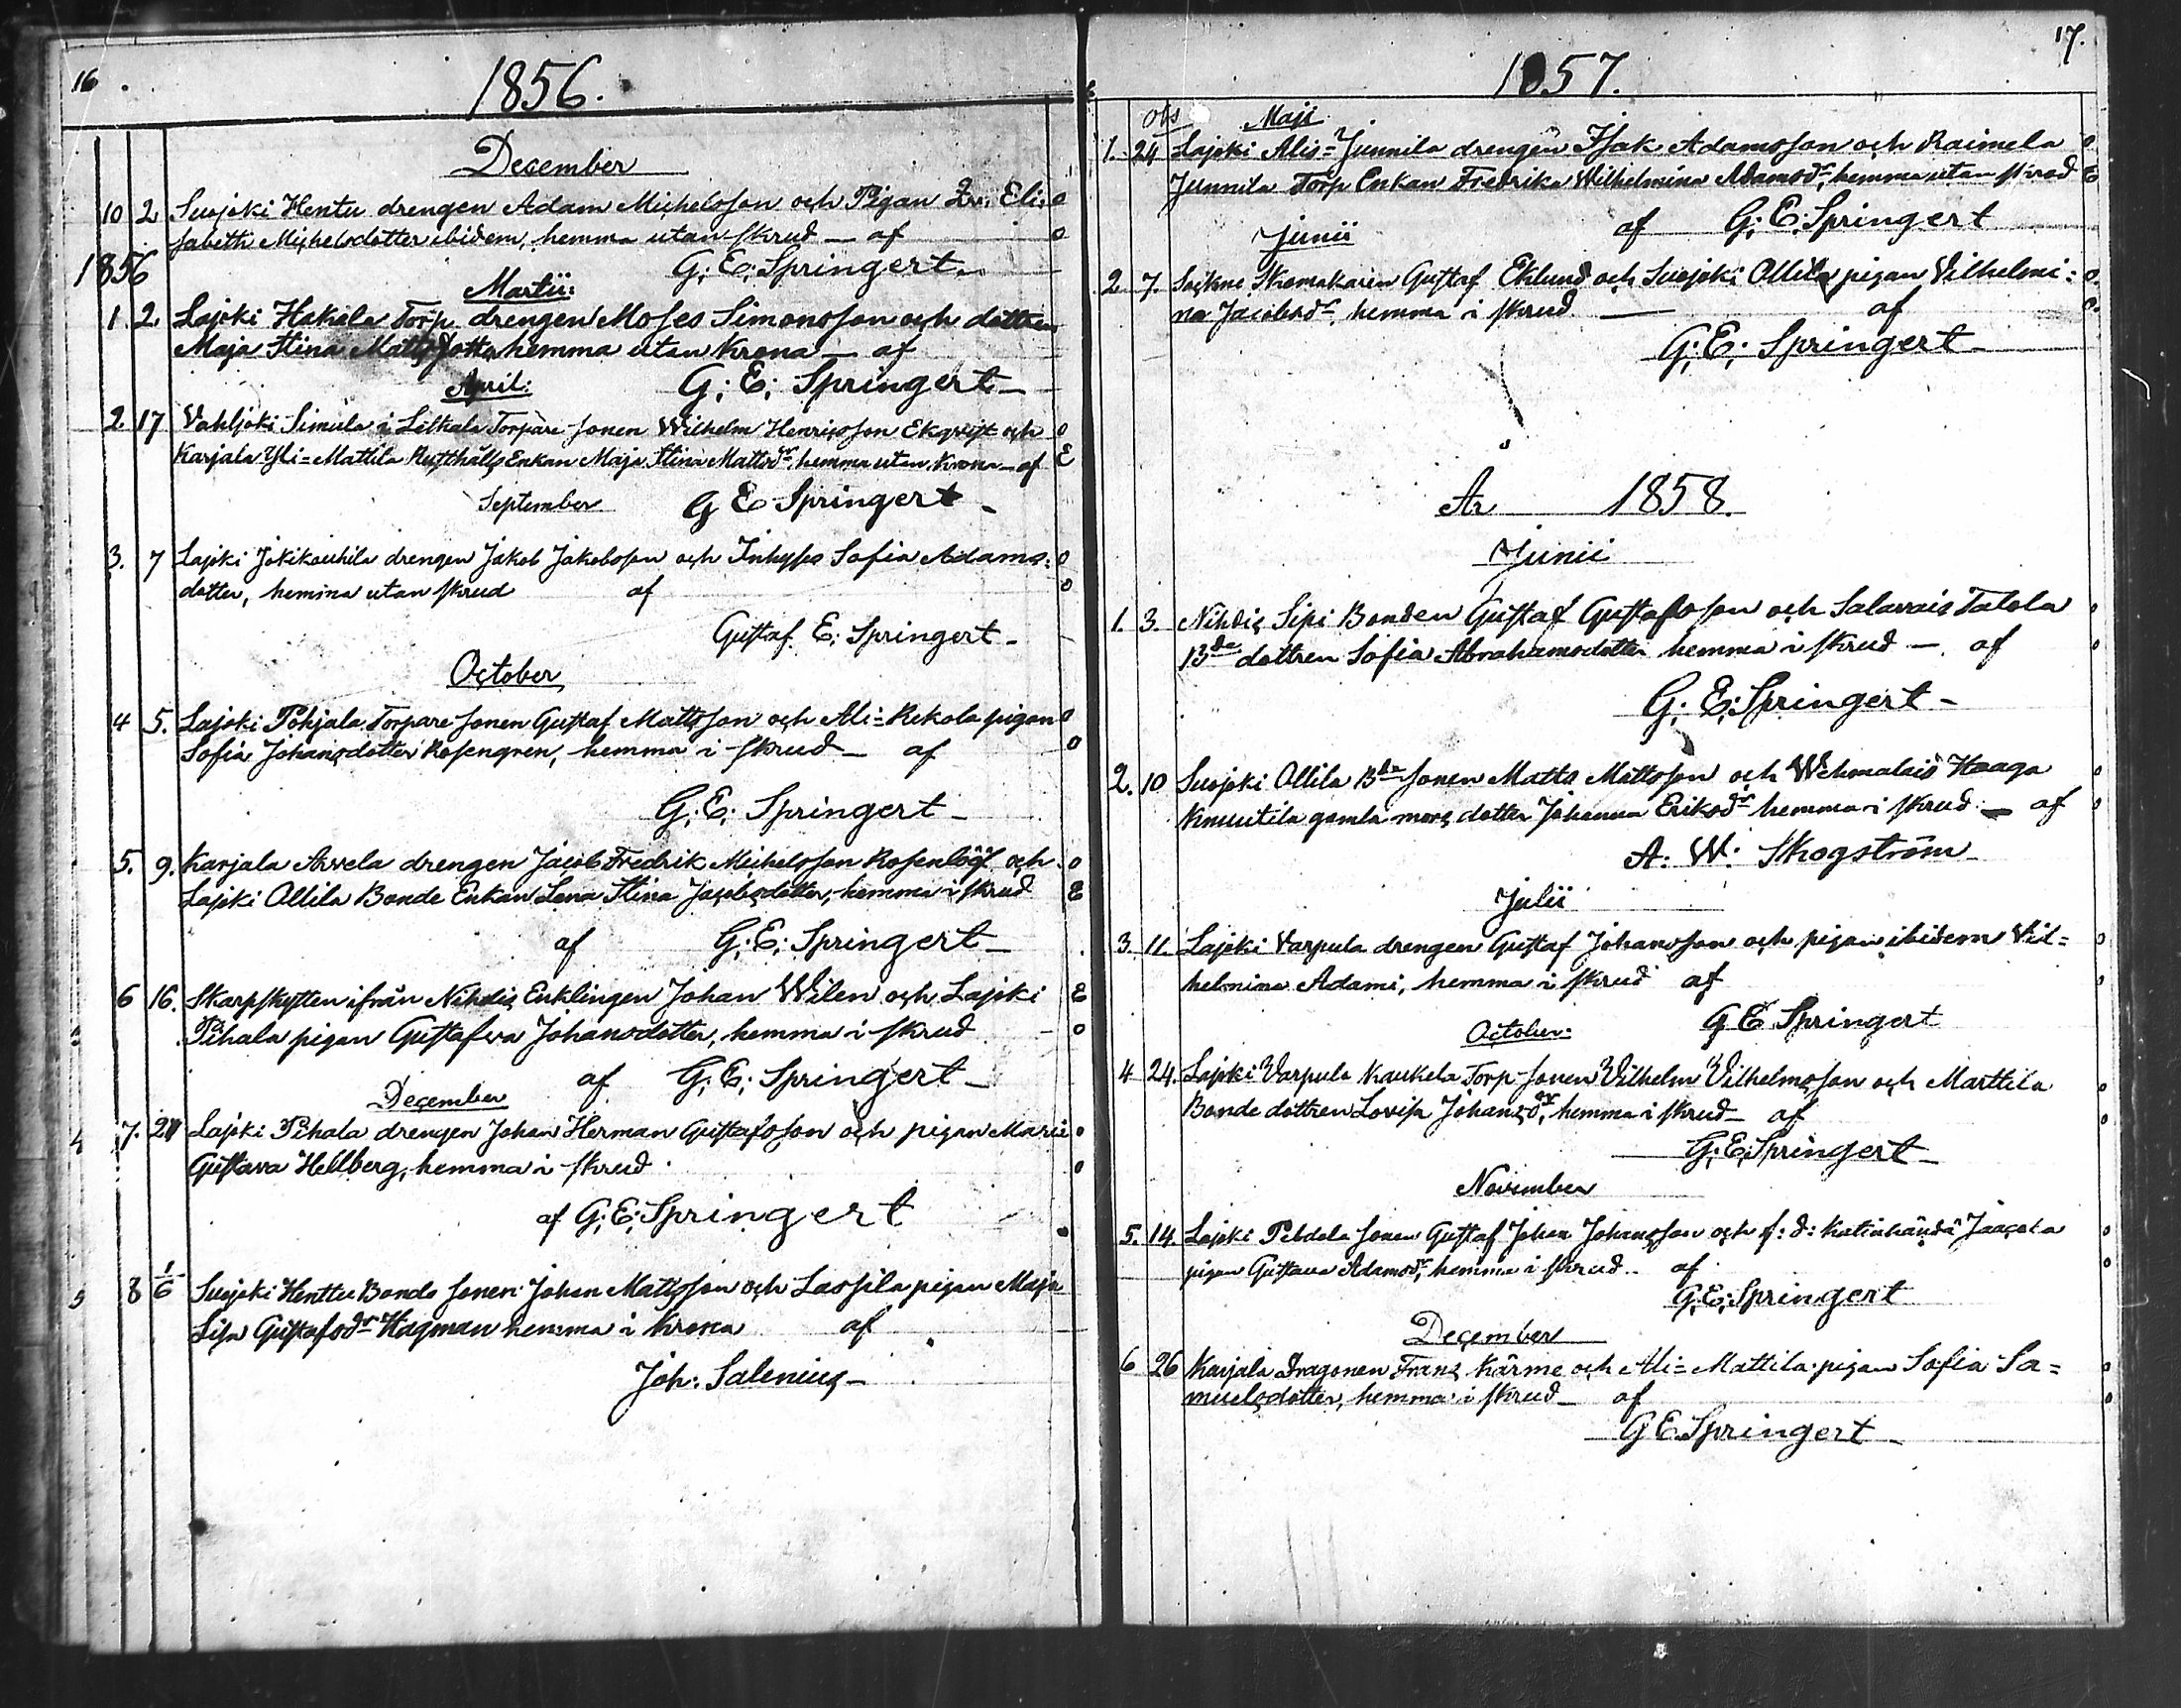 16
1856.
December
10 2 Suojoki Hentu drengen Adam Michelsson och Pigan Eli: 0
sabeth Michelsdotter ibidem, hemma utan skrud — af 0
1856 G: E: Springert
Martii:
1. 2 Lajoki Hakala Torp drengen Moses Simonsson och dottren
Maja Stina Mattsdotter hemma utan Krona — af
April: G: E: Springert —
2. 17 Vahljoki Simula i Leikala Torpare sonen Wilhelm Henricsson Ekqvist och 0
Karjala Yli=Mattila Rusthålls Enkan Maja Stina Mattsdr, hemma utan Krona — af E
September G E Springert —
3. 7 Lajoki Jokikouhila drengen Jakob Jakobsson och Inhyses Sofia Adams: 0
dotter, hemma utan skrud af 0
Gustaf E: Springert —
October
4 5. Lajoki Pohjala Torpare sonen Gustaf Mattsson och Ali=Rekola pigan 0
Sofia Johansdotter Rosengren, hemma i skrud — af 0
G: E: Springert —
5. 9. Karjala Arvela drengen Jacob Fredrik Michelsson Rosenlöf och 0
Lajoki Ollila Bonde Enkan Lena Stina Jacobsdotter, hemma i skrud E
af G: E: Springert —
6 16. Skarpskytten ifrån Nihdis Enklingen Johan Wilen och Lajoki E
Pihala pigan Gustafva Johansdotter, hemma i skrud 0
af G: E: Springert —
December
7. 27 Lajoki Pihala drengen Johan Herman Gustafsson och pigan Maria 0
Gustava Hellberg, hemma i skrud 0
af G: E: Springert
8 1/6 Suojoki Henttu Bonde sonen Johan Mattsson och Lassila pigan Maja
Lisa Gustafsdr Hagman hemma i Krona af
Joh: Salenius —
17.
1857.
obs Maji
1. 24 Lajoki Alis=Junnila drengen Isak Adamsson och Raimela 0
Junnila Torp Enkan Fredrika Wilhelmina Adamsdr, hemma utan skrud E
Junii af G: E: Springert
2 7. Sockne Skomakaren Gustaf Eklund och Suojoki Ollila pigan Vilhelmi: 0.
na Jacobsdr, hemma i skrud — af 0.
G: E: Springert —
År 1858.
Junii
1. 3. Nihdis Sipi Bonden Gustaf Gustafsson och Salavais Talola 0
Bde dottren Sofia Abrahamsdotter hemma i skrud — af 0
G: E: Springert —
2. 10 Suojoki Ollila Bde sonen Matts Mattsson och Wehmalais Haaga 0
Knuutila gamla mors dotter Johanna Eriksdr hemma i skrud — af 0
A: W: Skogström
Julii
3. 11. Lajoki Varpula drengen Gustaf Johansson och pigan ibidem Vil= 0
helmina Adami, hemma i skrud af 0
October: G E Springert
4 24. Lajoki Varpula Kaukela Torp sonen Vilhelm Vilhelmsson och Marttila 0
Bonde dottren Lovisa Johansdr, hemma i skrud — af 0
G: E: Springert —
November
5. 14. Lajoki Peldola sonen Gustaf Johan Johansson och f: d: Jaacola 0
pigan Gustava Adamsdr, hemma i skrud.. af 0
G: E: Springert
December
6 26 Karjala Dragonen Frans Kärme och Ali=Mattila pigan Sofia Sa= 0
muelsdotter, hemma i skrud — af 0
G E Springert —